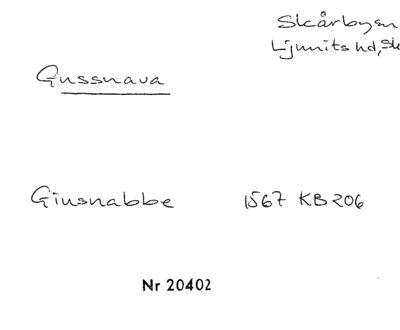 Skårbysn
Ljunits hd, Sk
Gussnava
Giusnabbe 1567 KB 206
Nr 20402